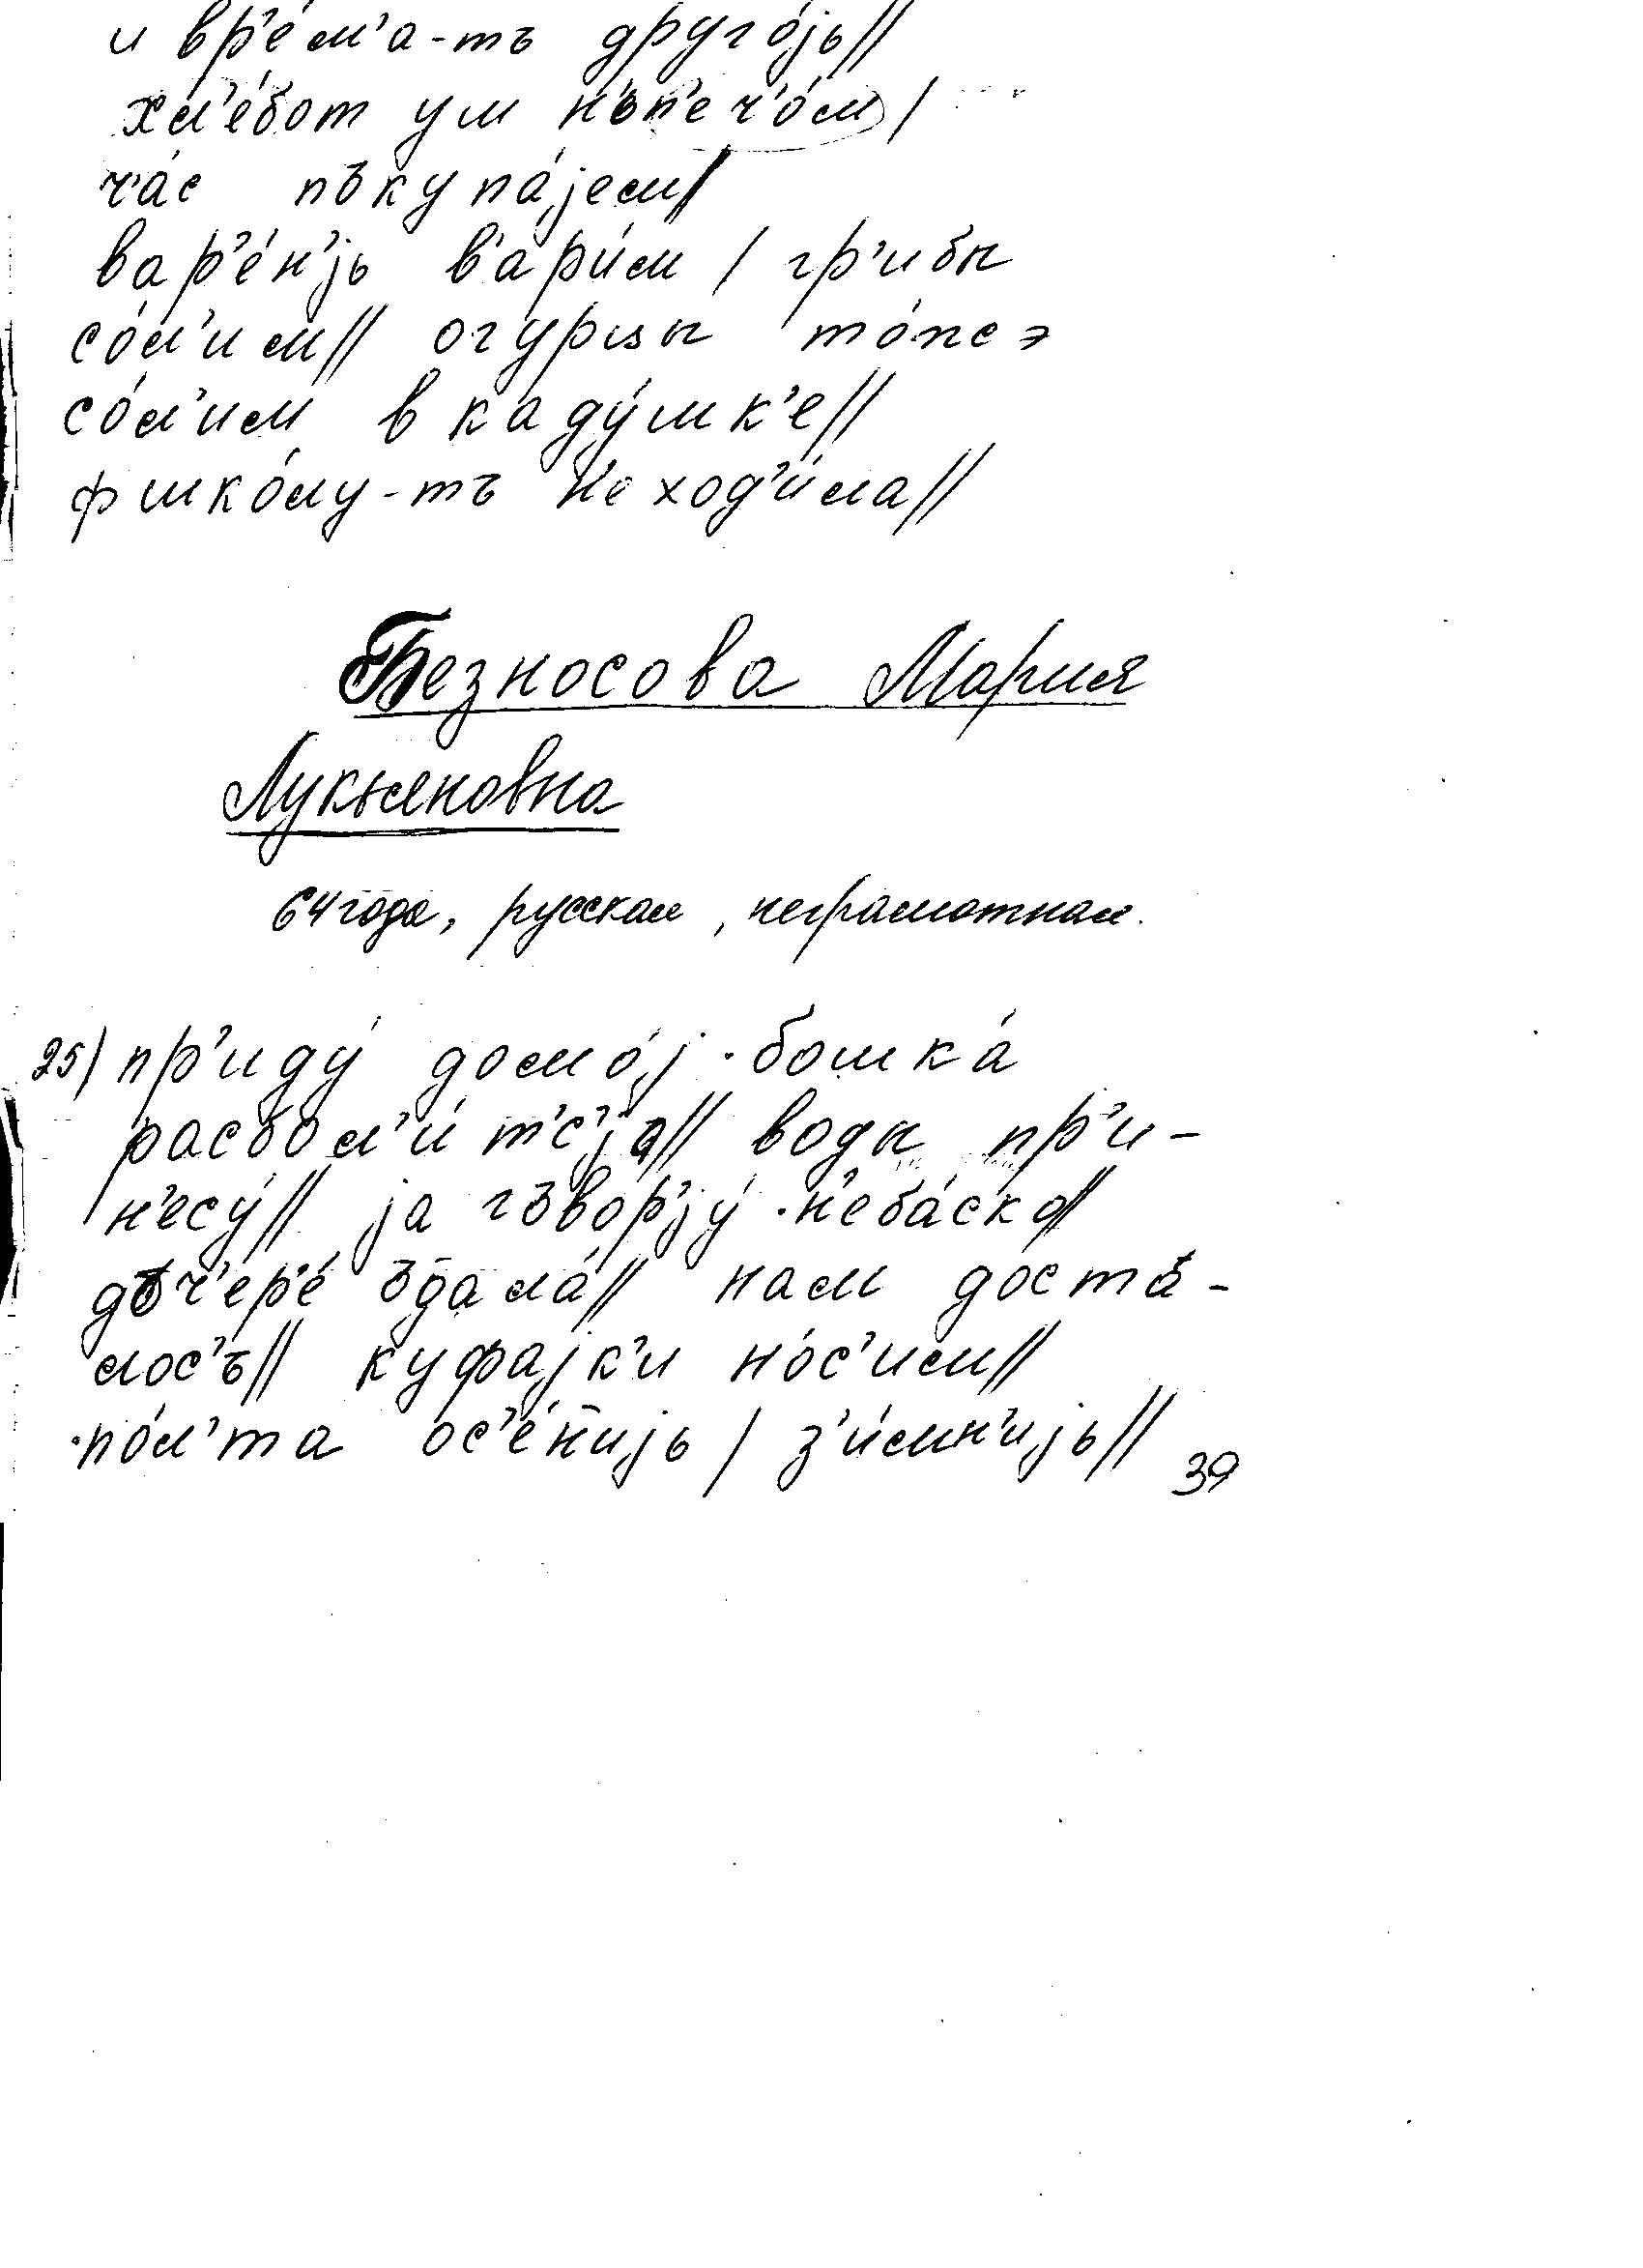 и вр'е́м'а-тъ друго́jь//
хл'е́бот уш н'ьп'еч'о́м /
ч'а́с пъкупа́jем//
вар'е́н'jь в'ари́м / гр'ибы
со́л'им// огурцы то́жэ
со́л'им в каду́шк'е//
фшко́лу-тъ н'е ход'и́ла//
Безносова Мария
Лукьяновна
64 года, русская, неграмотная.
25) пр'иду́ домо́j · бошка́
расбол'и́т'с'jа// воды пр'и-
н'есу́// jа гъвор'jу́ · н'еба́ско//
дъч'ер'е́ ъдала́// нам доста́-
лос'ъ// куфаjк'и но́с'им//
· по́л'та ос'е́нијь / з'и́мн'иjь//
39